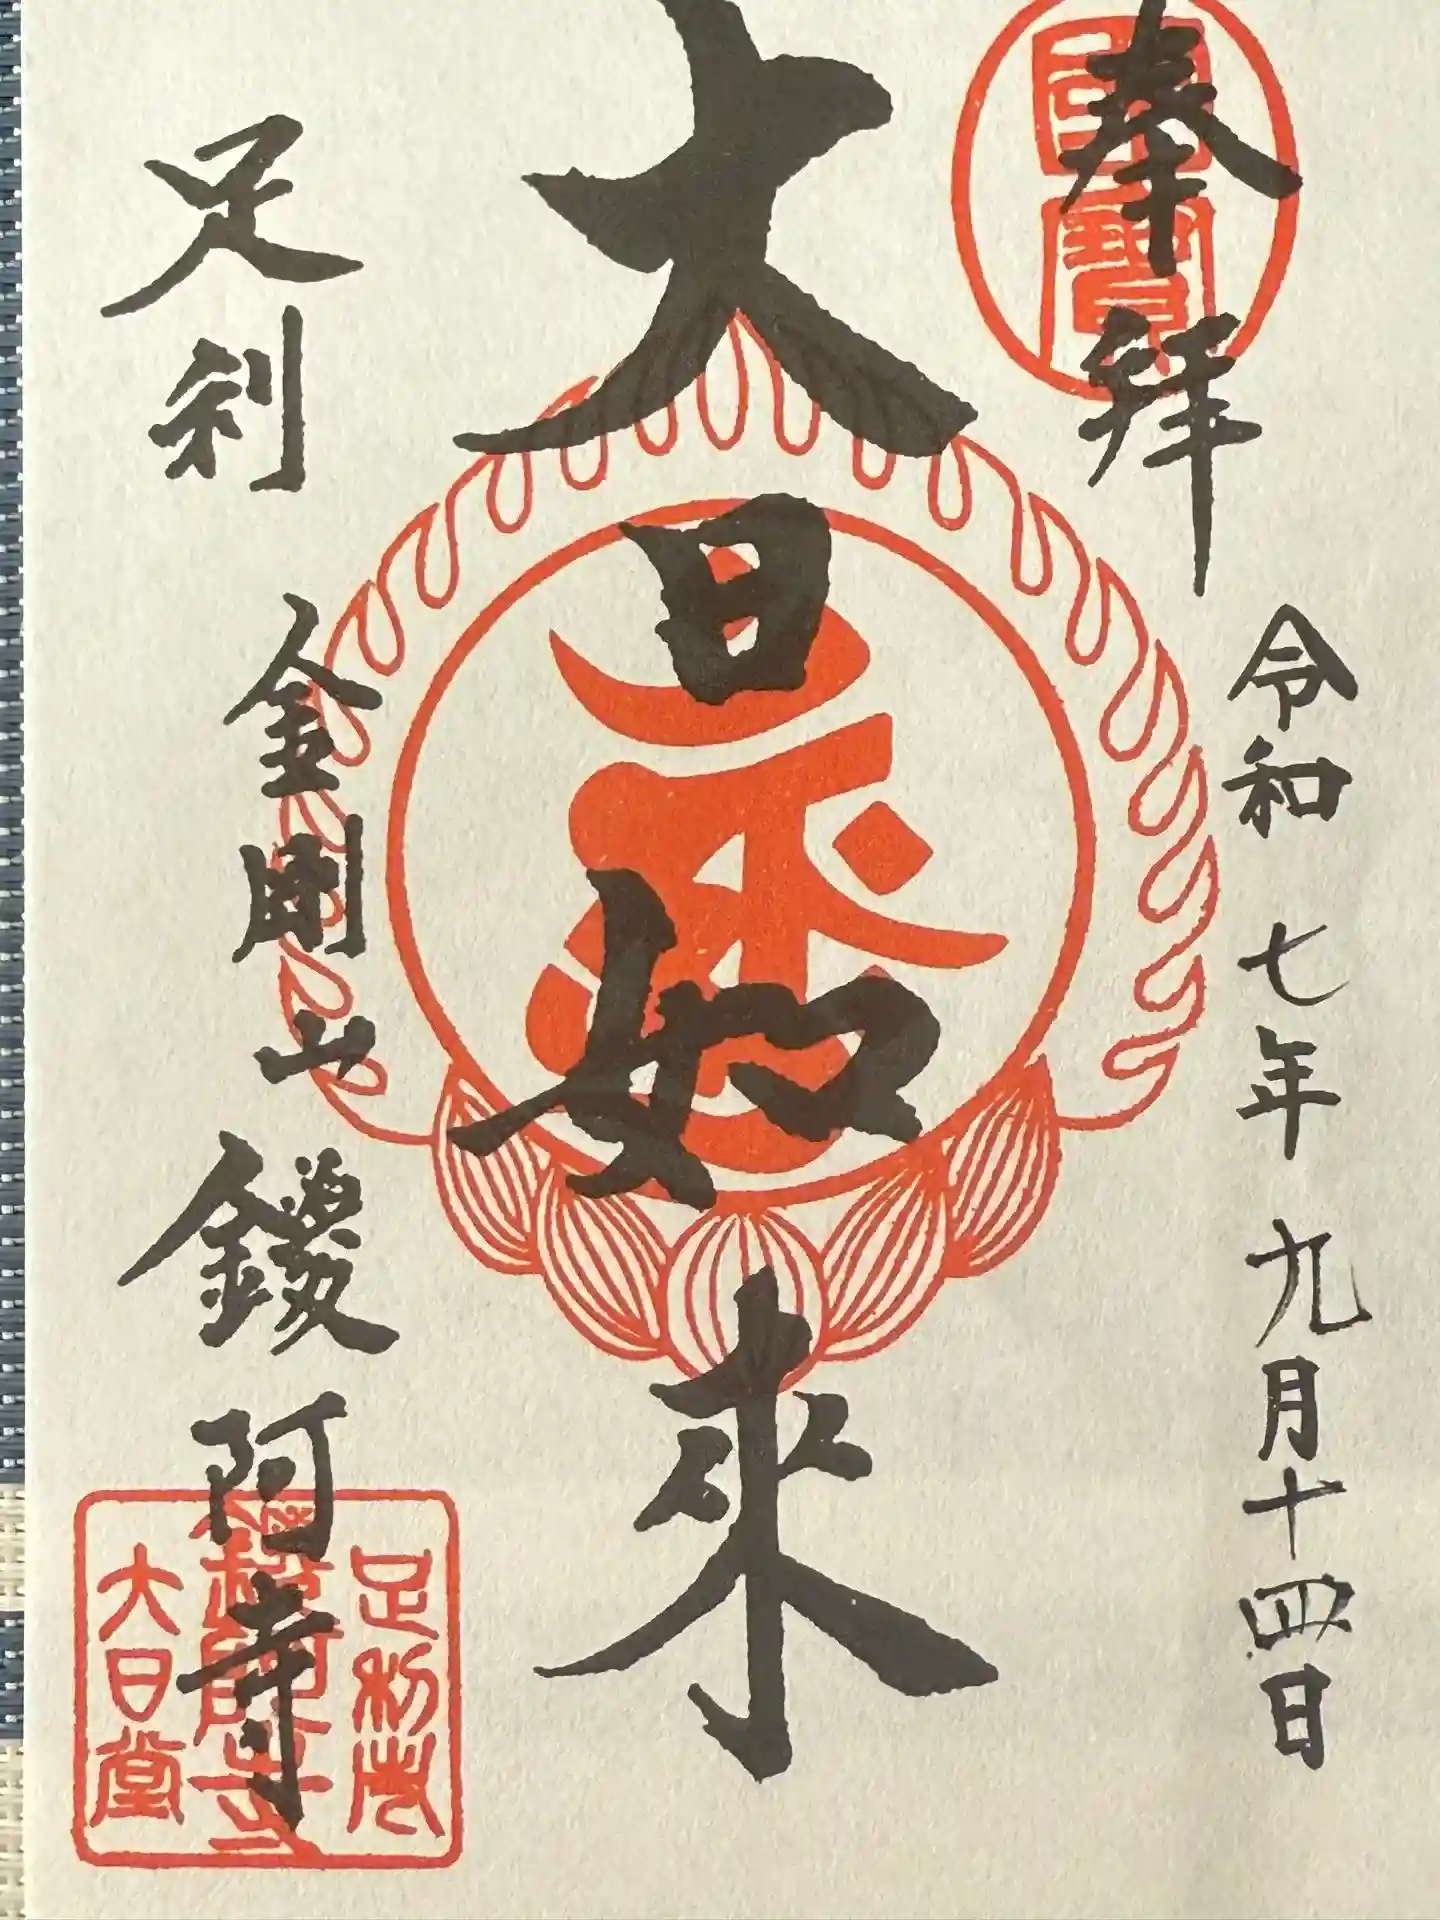 奉拝
令和七年九月十四日
大日如來
足利
金剛山鑁阿寺
國寶
足利市
鑁阿寺
大日堂